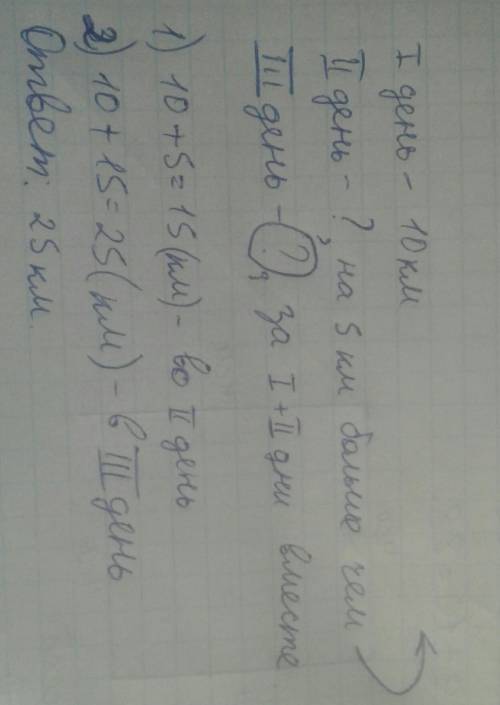 I день - 10 км
II день - ? на 5 км больше чем
III день - ?, за I + II дни вместе
1) 10 + 5 = 15 (км) - во II день
2) 10 + 15 = 25 (км) - в III день
Ответ: 25 км.